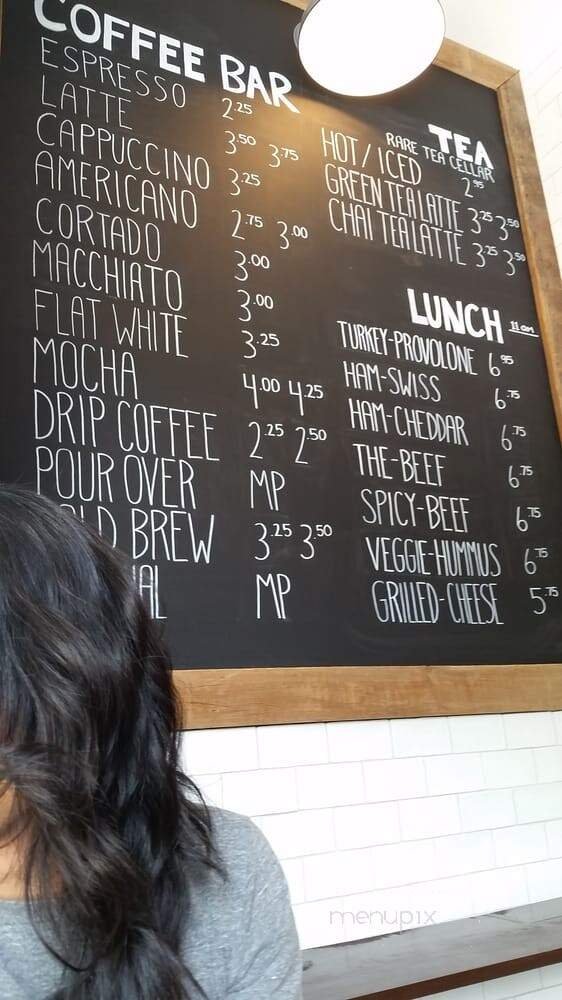 COFFEE BAR
ESPRESSO 2.25
LATTE 3.50 3.75
CAPPUCCINO 3.25
AMERICANO 2.75 3.00
CORTADO 3.00
MACCHIATO 3.00
FLAT WHITE 3.25
MOCHA 4.00 4.25
DRIP COFFEE 2.25 2.50
POUR OVER MP
OLD BREW 3.25 3.50
MP
TEA
RARE TEA CELLAR
HOT / ICED 2.95
GREEN TEA LATTE 3.25 3.50
CHAI TEA LATTE 3.25 3.50
LUNCH 11am
TURKEY-PROVOLONE 6.95
HAM-SWISS 6.75
HAM-CHEDDAR 6.75
THE-BEEF 6.75
SPICY-BEEF 6.75
VEGGIE-HUMMUS 6.75
GRILLED-CHEESE 5.75
menupix